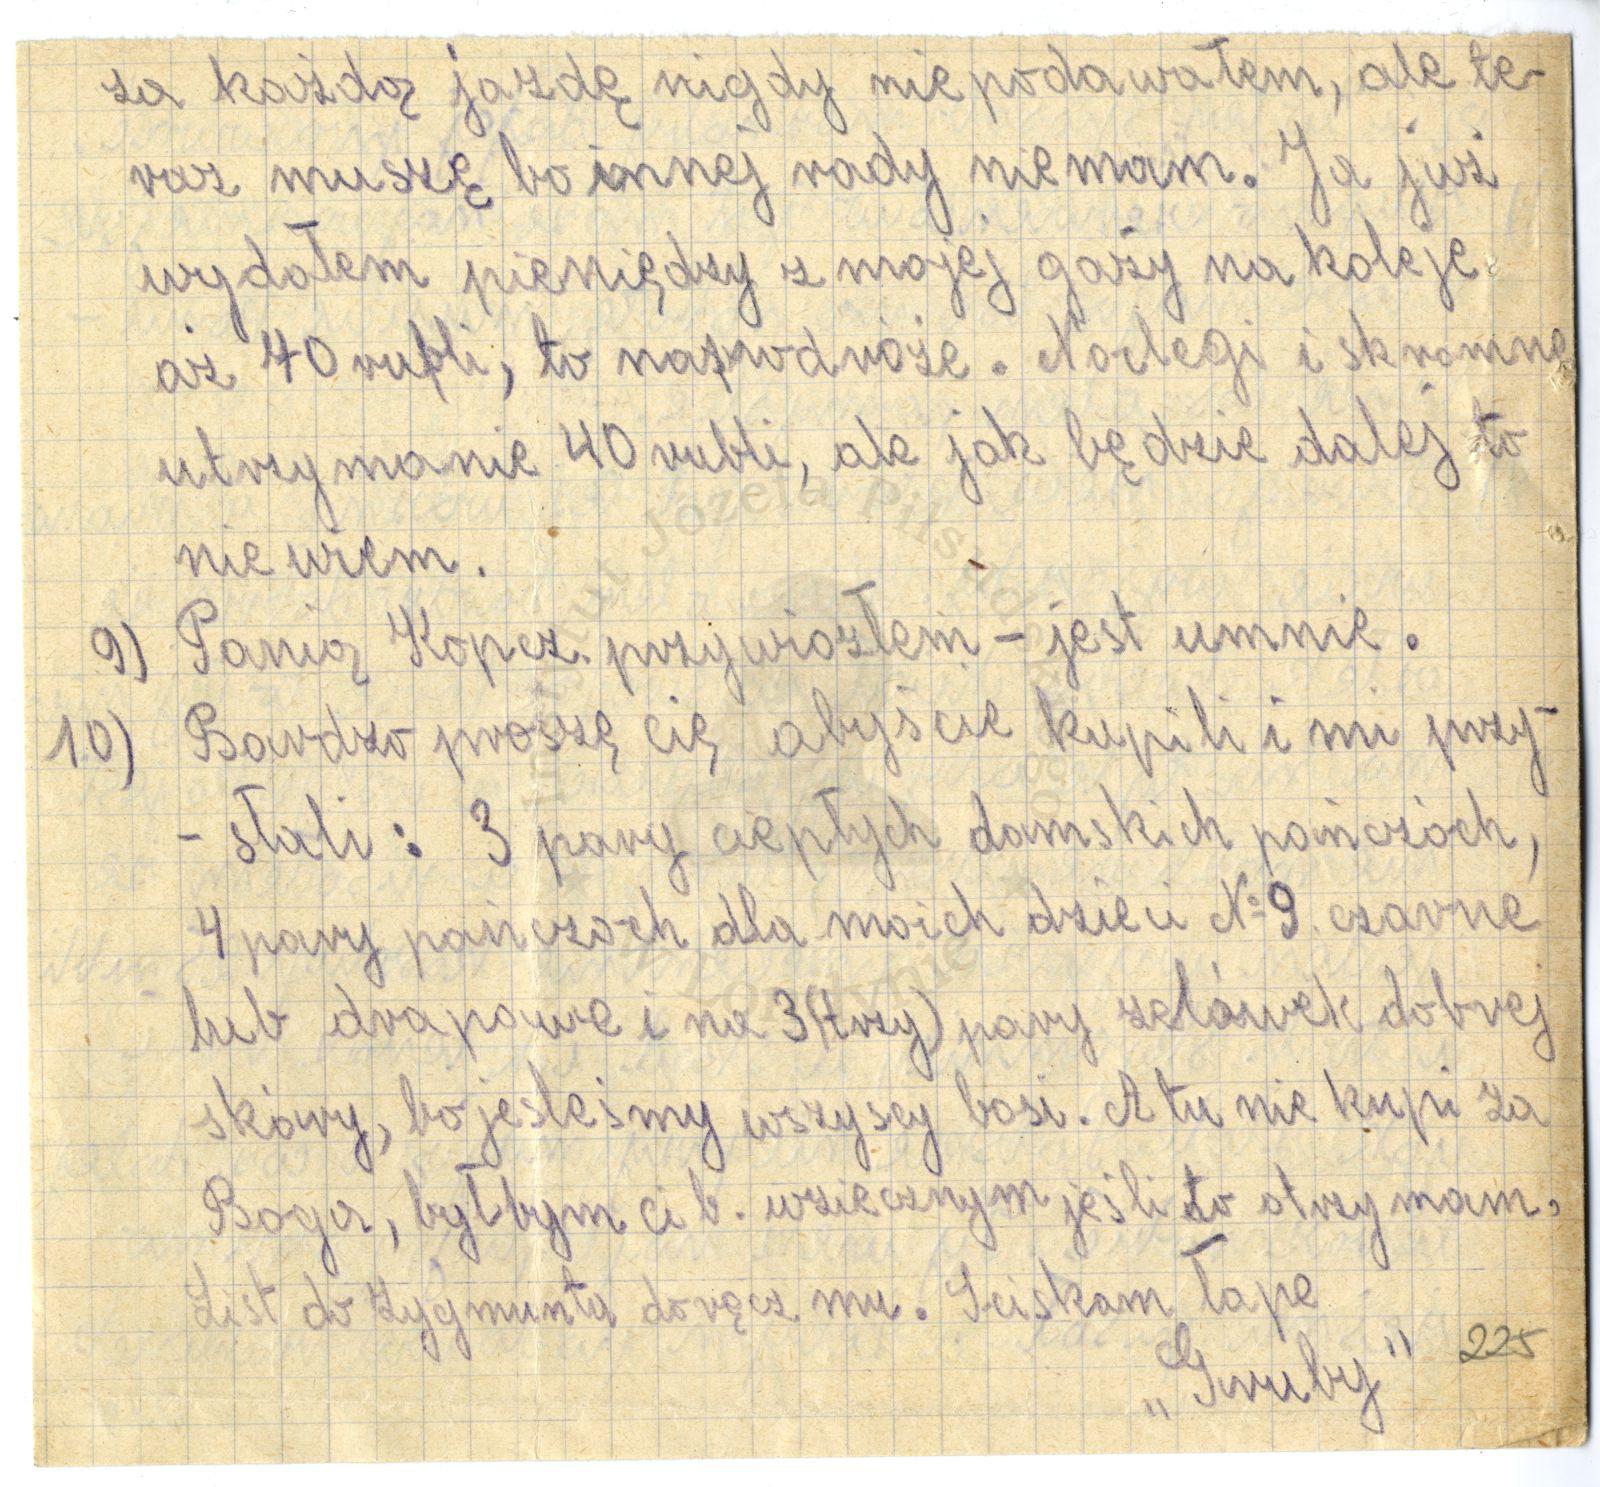 za każdą jazdę nigdy nie podawałem, ale te-
raz muszę bo innej rady niemam. Ja już
wydałem pieniędzy z mojej gaży na koleje
aż 40 rubli, to na podróże. Noclegi i skromne
utrzymanie 40 rubli, ale jak będzie dalej to
nie wiem.
9) Panią Kopcz. przywiozłem - jest umnie.
10) Bardzo proszę cię abyście kupili i mi przy-
- słali: 3 pary ciepłych damskich pończoch,
4 pary pończoch dla moich dzieci № 9. czarne
lub drapowe i na 3 (trzy) pary zelówek dobrej
skóry, bo jesteśmy wszyscy bosi. A tu nie kupi za
Boga, byłbym ci b. wziecznym jeśli to otrzymam.
List do Zygmunta doręcz mu. Sciskam łape
„Gruby"
225
Instytut Józefa Piłsudskiego
w Londynie